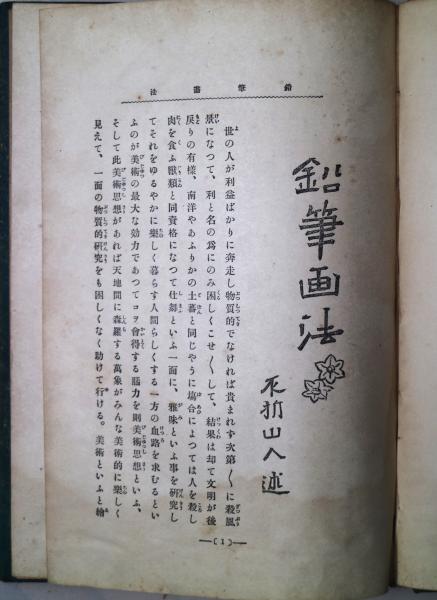 鉛筆畫法
鉛筆画法
不折山人述
世の人が利益ばかりに奔走し物質的でなければ貴まれず次第〱に殺風
景になつて、利と名の爲にのみ困しくこせ〱して、結果は却て文明が後
戻りの有様、南洋やあふりかの土蕃と同じやうに塲合によつては人を殺し
肉を食ふ獸類と同資格になつて仕剱といふ一面に、雅味といふ事を研究し
てそれをゆるやかに樂しく暮らす人間らしくする一方の血路を求むるとい
ふのが美術の最大な効力であつてコヲ會得する腦力を則美術思想といふ、
そして此美術思想があれば天地間に森羅する萬象がみんな美術的に樂しく
見えて、一面の物質的硏究をも困しくなく助けて行ける。美術といふと繪
(1)